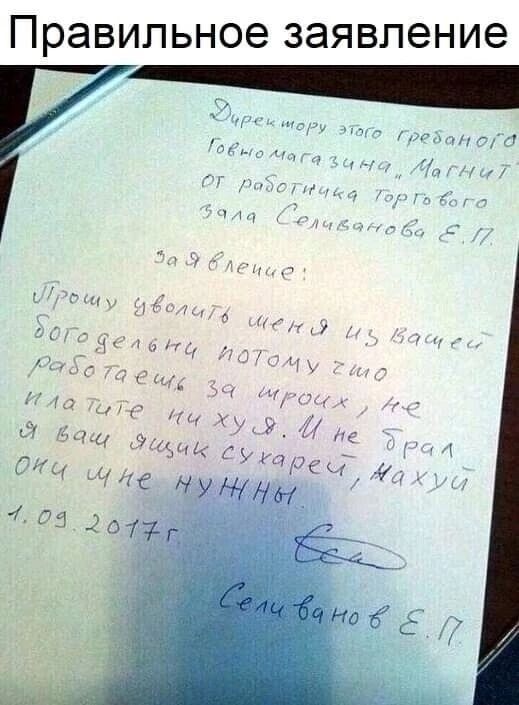 Правильное заявление
Директору этого гребаного
Говномагазина „Магнит
от работника торгового
зала Селиванова Е.П.
заявление:
Прошу уволить меня из вашей
богодельни потому что
работаешь за троих, не
платите ни хуя. И не брал
я ваш ящик сухарей, нахуй
они мне нужны
1.09.2017г.
Селиванов Е.П.